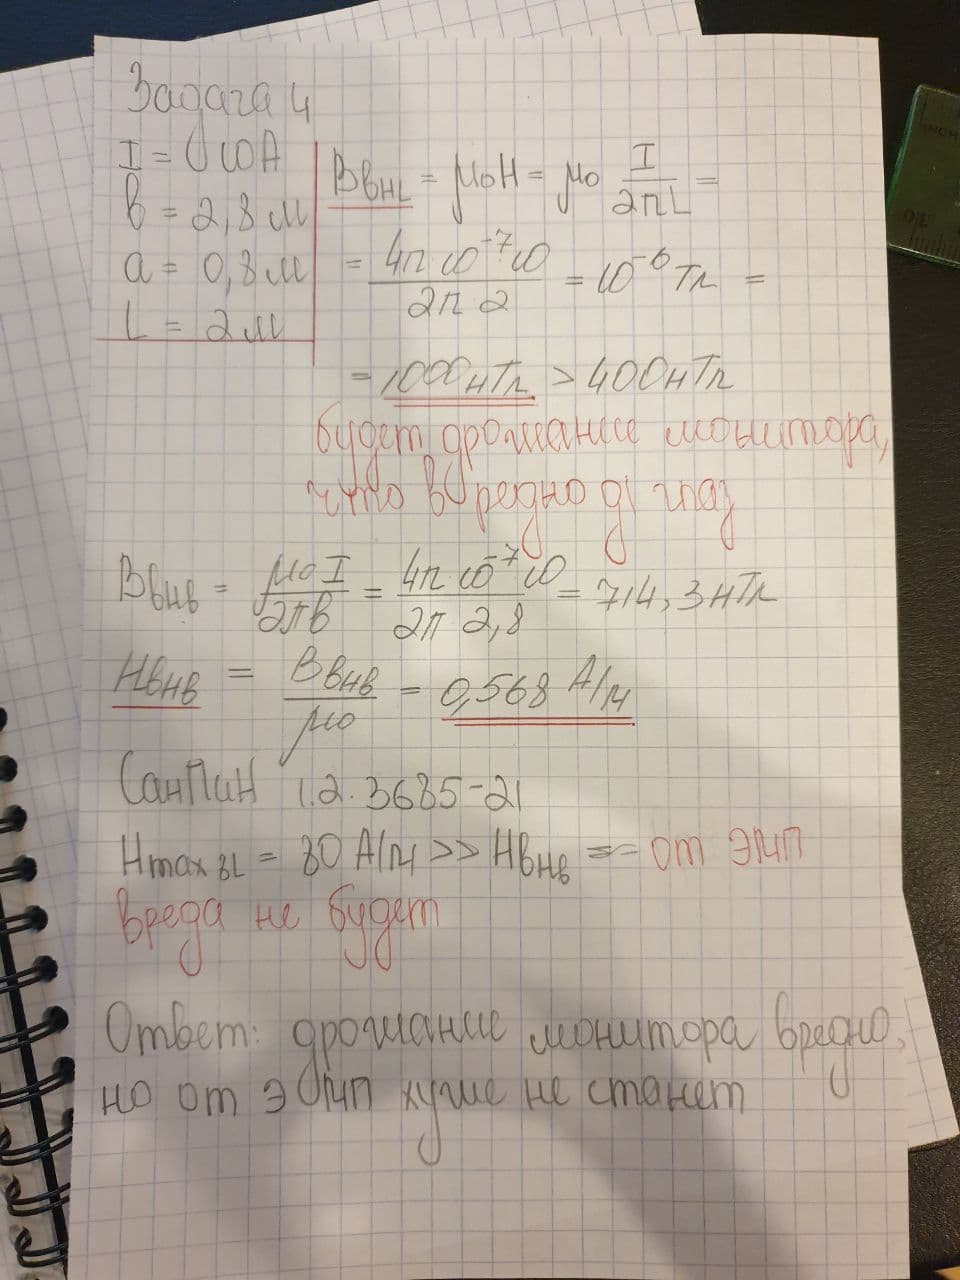 Задача 4
I = 10А
b = 2,8 м
a = 0,8 м
L = 2м
BвнL = μ0H = μ0 I/2πL =
= 4π 10⁻⁷ 10 / 2π 2 = 10⁻⁶ Тл =
= 1000нТл > 400нТл
будет дрожание монитора,
что вредно д/ глаз
Bвнв = μ0 I/2πb = 4π 10⁻⁷ 10 / 2π 2,8 = 714,3нТл
Hвнв = Bвнв/μ0 = 0,568 А/м
СанПиН 1.2.3685-21
Hmax = 80 А/м >> Hвнв => от ЭМП
вреда не будет
Ответ: дрожание монитора вредно,
но от ЭМП хуже не станет